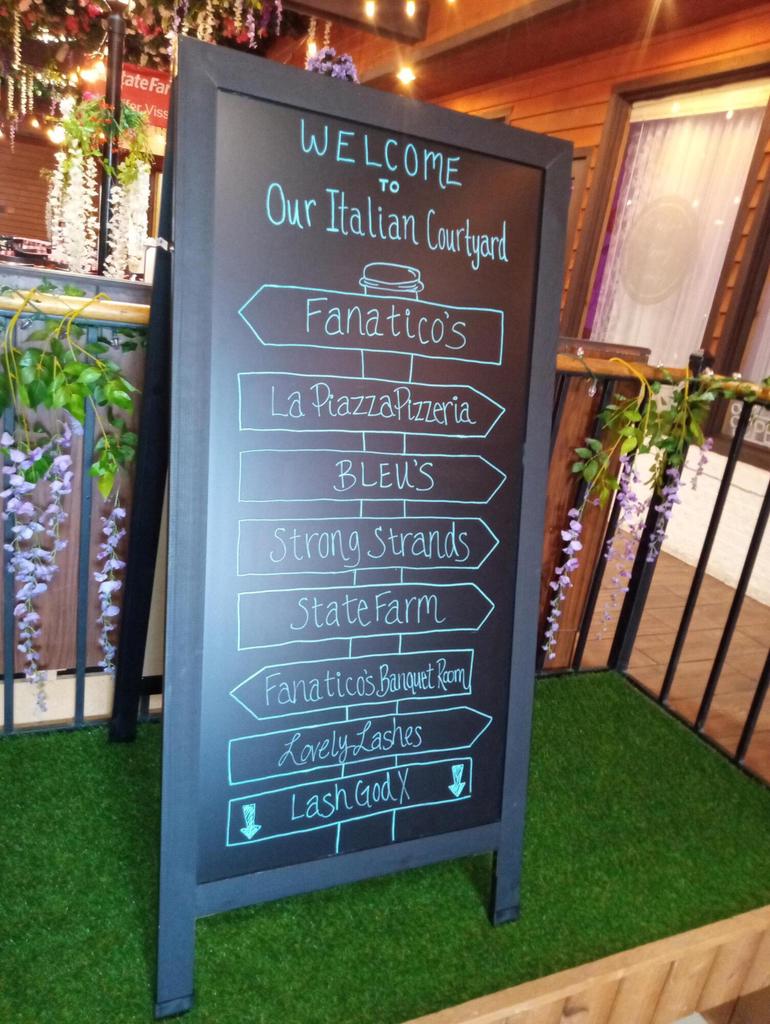 WELCOME
TO
Our Italian Courtyard
Fanatico's
La Piazza Pizzeria
BLEU'S
Strong Strands
State Farm
Fanatico's Banquet Room
Lovely Lashes
Lash God X